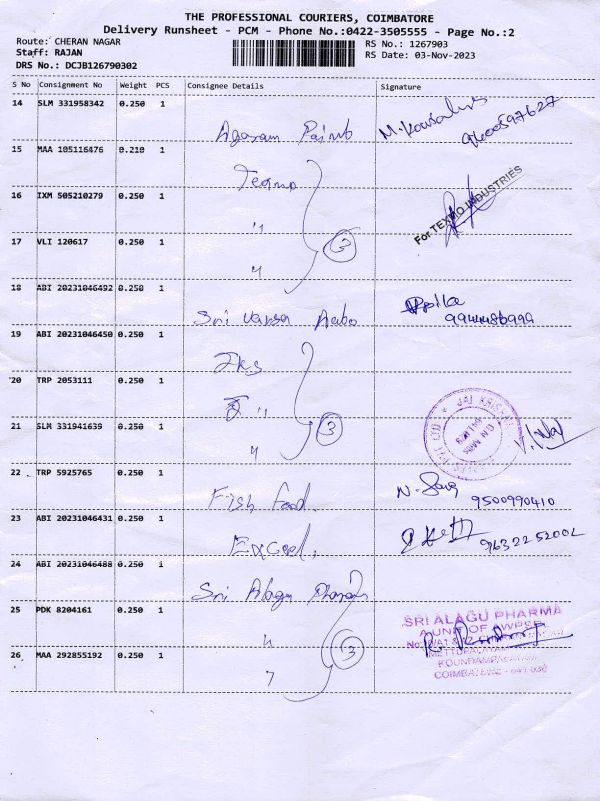 THE PROFESSIONAL COURIERS, COIMBATORE
Delivery Runsheet - PCM - Phone No.:0422-3505555 - Page No.:2
Route: CHERAN NAGAR
Staff: RAJAN
DRS No.: DCJB126790302
RS No.: 1267903
RS Date: 03-Nov-2023
S No Consignment No Weight PCS Consignee Details Signature
14 SLM 331958342 0.250 1 Agaram Paints
15 MAA 105116476 0.210 1
For TEXMO INDUSTRIES
16 IXM 505210279 0.250 1 "
17 VLI 120617 0.250 1 "
3
18 ABI 20231046492 0.250 1 Sri
19 ABI 20231046450 0.250 1
20 TRP 2053111 0.250 1 "
21 SLM 331941639 0.250 1 "
3
JAI KRISH
22 TRP 5925765 0.250 1 Fish food
9500990410
23 ABI 20231046431 0.250 1 Excel
24 ABI 20231046488 0.250 1 Sri Alagu
25 PDK 8204161 0.250 1 "
SRI ALAGU PHARMA
A UNIT OF
26 MAA 292855192 0.250 1 "
3